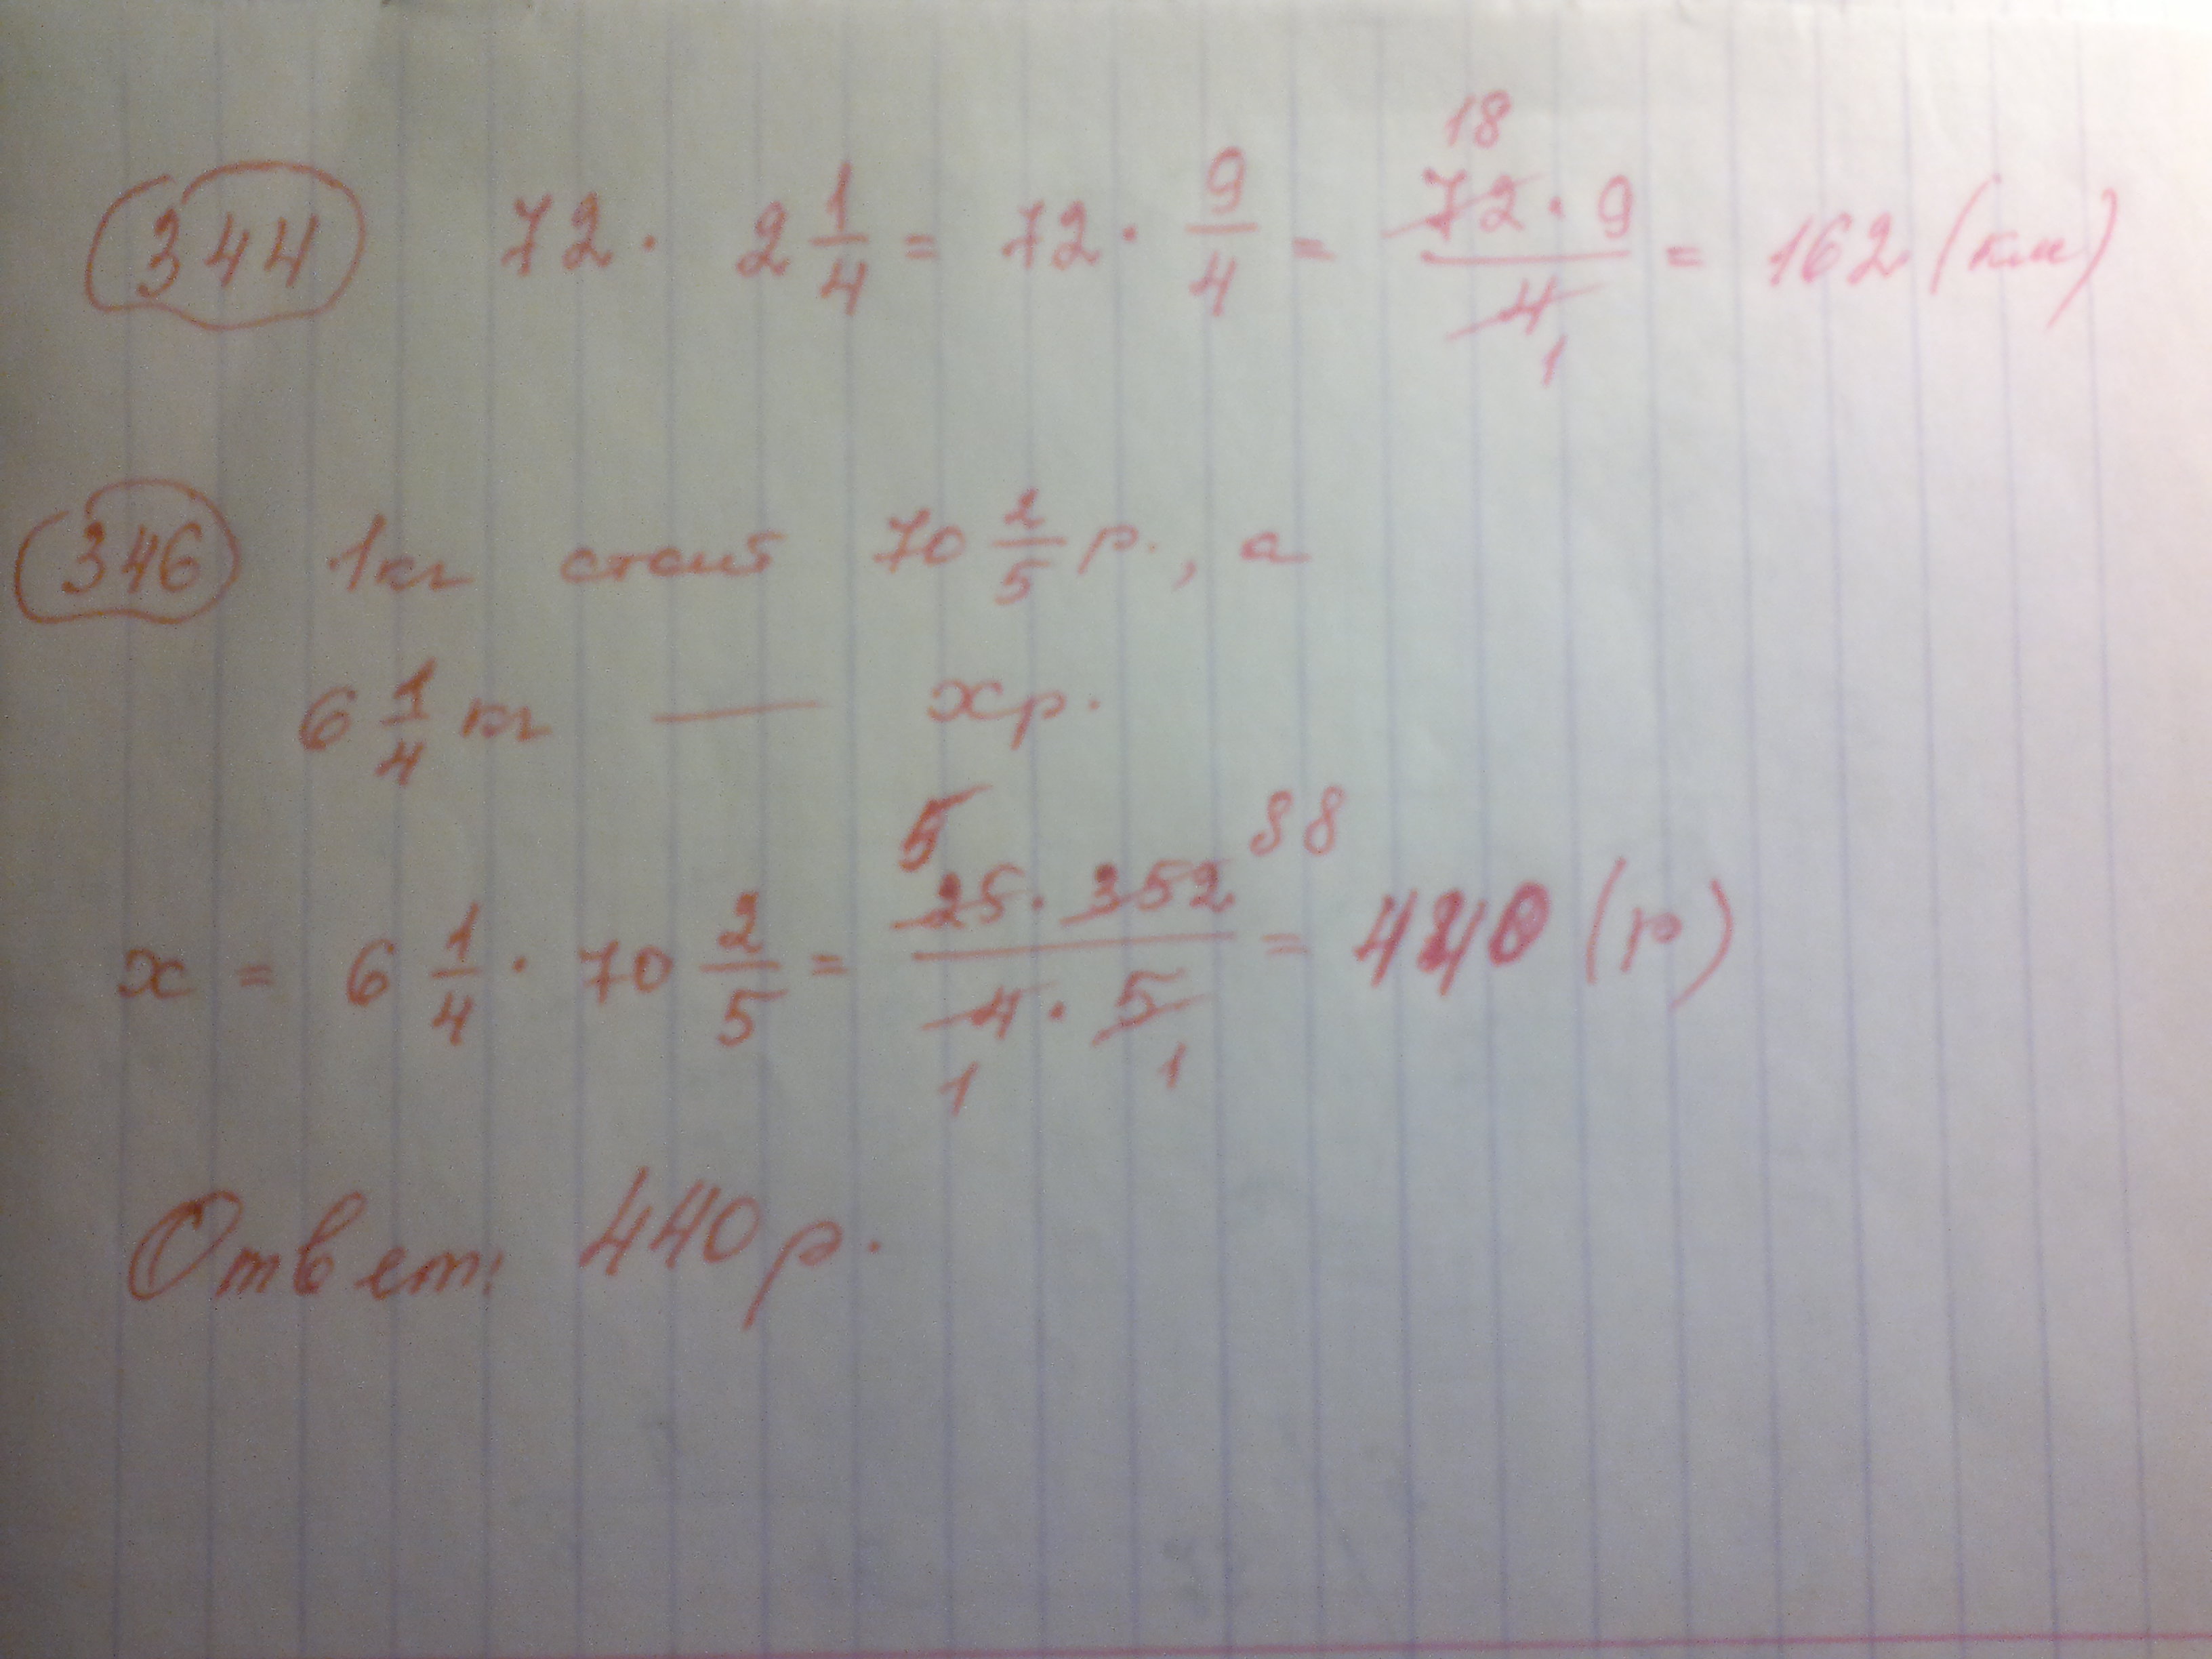 344 72 · 2 1/4 = 72 · 9/4 = 18 72 · 9 / 4 1 = 162 (км)
346 1кг стоит 70 2/5 р., а
6 1/4 кг — x р.
x = 6 1/4 · 70 2/5 = 5 25 · 352 88 / 4 1 · 5 1 = 440 (р)
Ответ: 440 р.